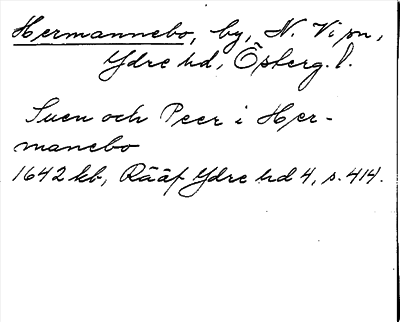 Hermannebo, by, N. Vi sn,
Ydre hd, Österg. l.
Suen och Peer i Her-
manebo
1642 kb, Rääf Ydre hd 4, s. 414.